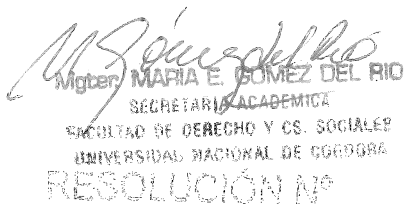 M Gómez del Rió
Mgter. MARIA E. GOMEZ DEL RIO
SECRETARIA ACADEMICA
FACULTAD DE DERECHO Y CS. SOCIALES
UNIVERSIDAD NACIONAL DE CORDOBA
RESOLUCIÓN Nº